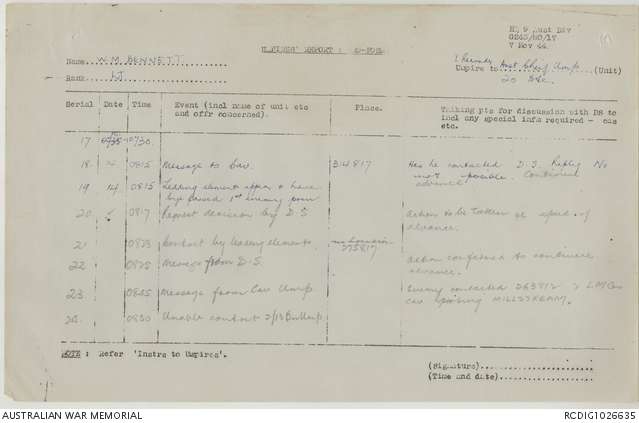 HQ 9 Aust Div
G245/BO/17
7 Nov 44
UMPIRES' REPORT :
Name W.M BENNETT
Umpire to Asst Chief Ump (Unit)
20 Bde.
Rank LT
Serial Date Time Event (incl name of unit etc and offr concerned). Place. Talking pts for discussion with DS to incl any special info required - cas etc.
17 0730
18 14 0815 Message to Cav 314817 Has he contacted D.S. Reply No
not possible. Continued
advance
19 14 0815 Leading element appear to have
by passed 1st enemy posn
20 0817 Request decision by D.S Action to be taken re speed of
advance.
21 0823 Contact by leading elements. 275817
22 0825 Message from D.S. Action confirmed to continue
advance.
23 0825 Message from Cav Ump. Enemy contacted 263812 2 LMGs
cov MILLSTREAM.
24 0830 Unable contact 2/13 Bn Ump.
NOTE : Refer 'Instrs to Umpires'.
(Signature)
(Time and date)
AUSTRALIAN WAR MEMORIAL
RCDIG1026635